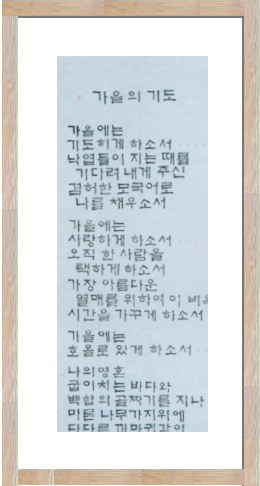 가을의 기도
가을에는
기도하게 하소서
낙엽들이 지는 때를
기다려 내게 주신
겸허한 모국어로
나를 채우소서
가을에는
사랑하게 하소서
오직 한 사람을
택하게 하소서
가장 아름다운
열매를 위하여 이
시간을 가꾸게 하소서
가을에는
호올로 있게 하소서
나의 영혼
굽이치는 바다와
백합의 골짜기를 지나
마른 나무가지위에
다다른 까마귀같이